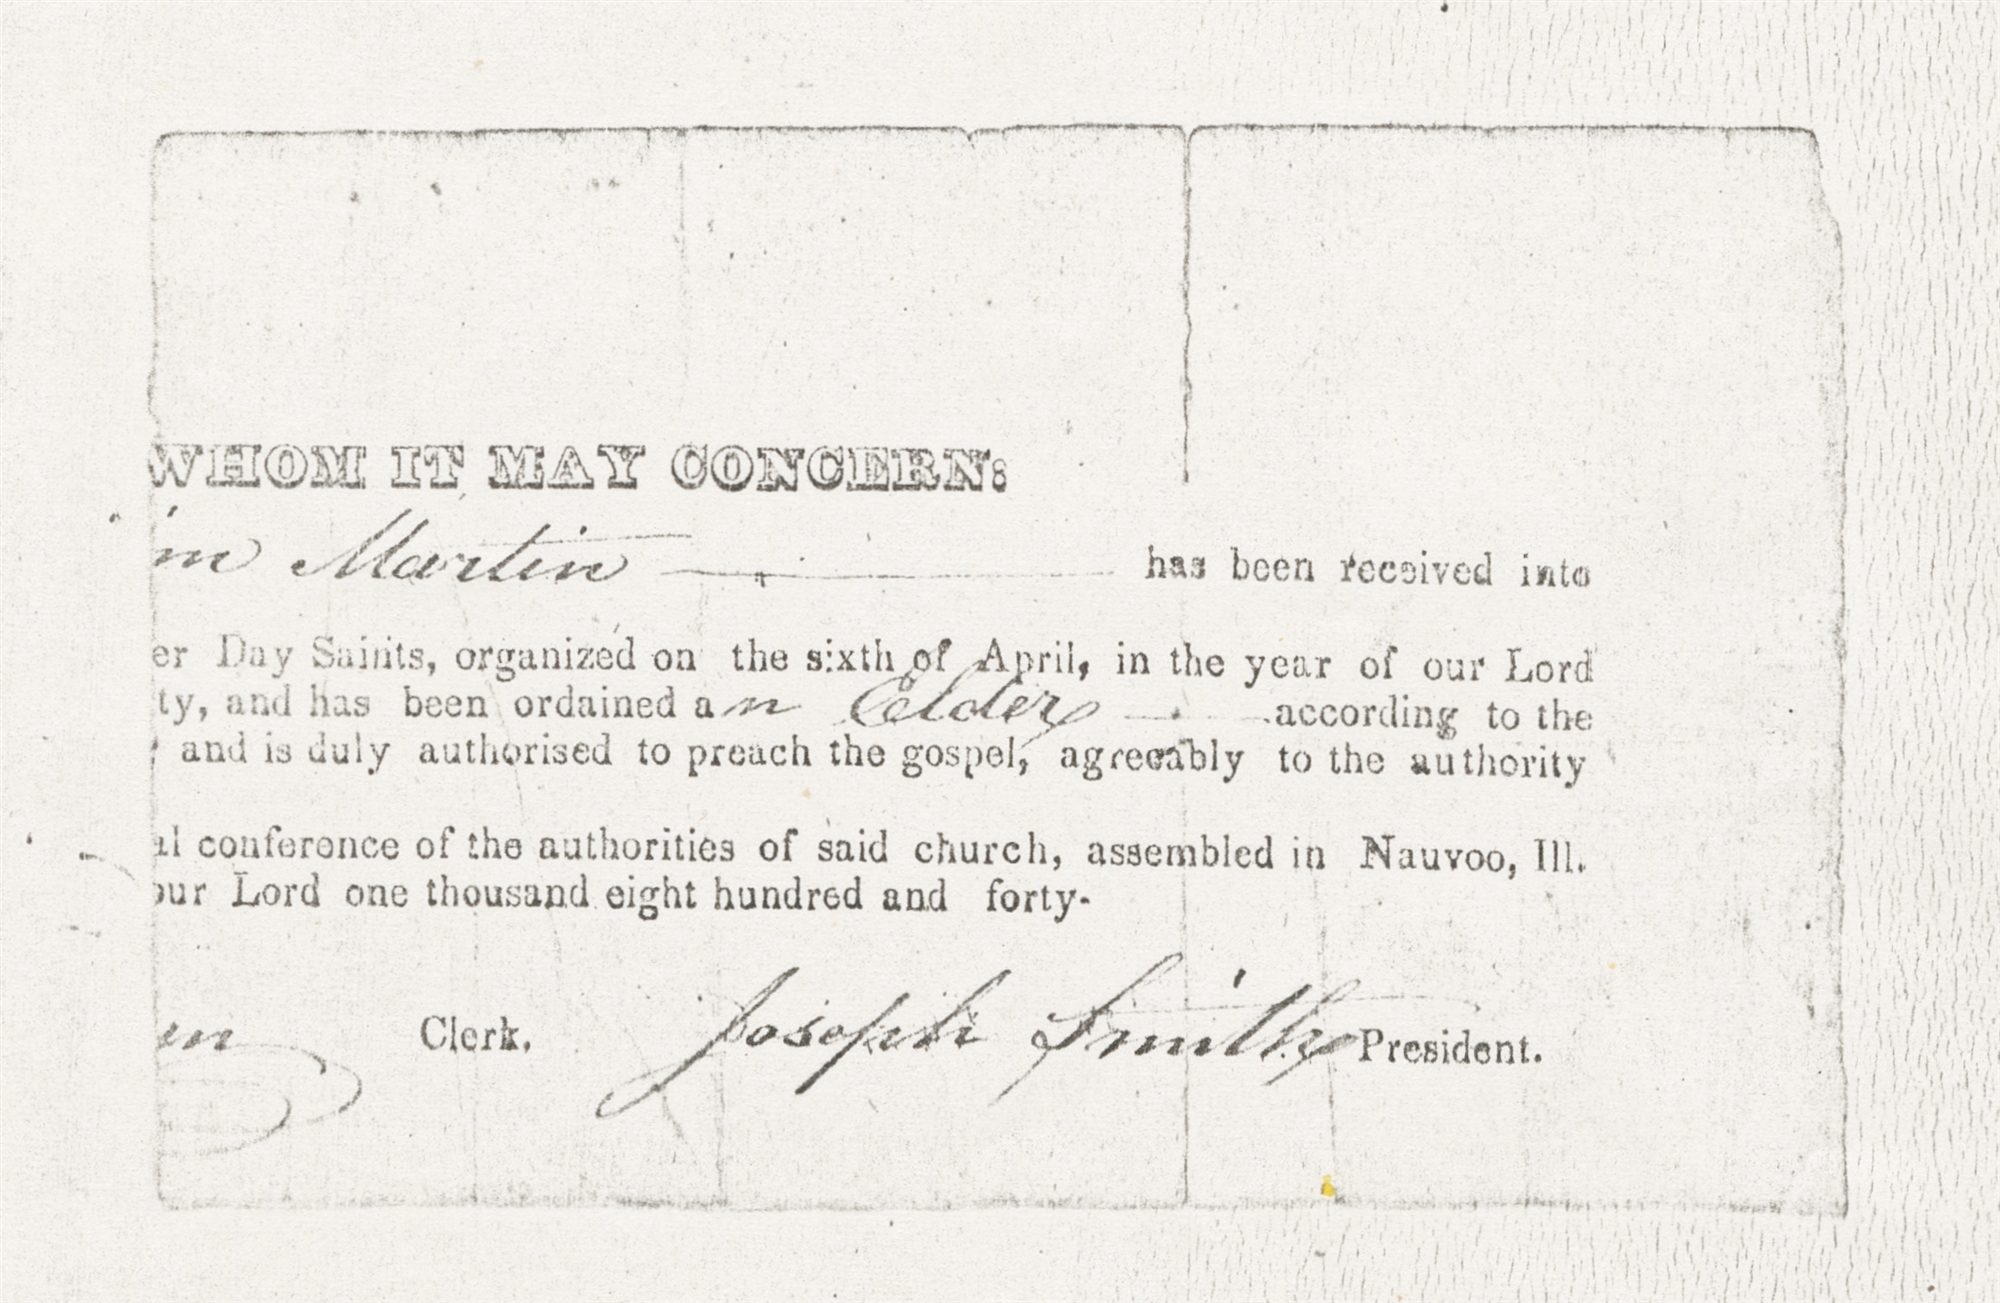 WHOM IT MAY CONCERN:
m Martin has been received into
er Day Saints, organized on the sixth of April, in the year of our Lord
ty, and has been ordained an Elder according to the
and is duly authorised to preach the gospel, agreeably to the authority
al conference of the authorities of said church, assembled in Nauvoo, Ill.
our Lord one thousand eight hundred and forty-
en Clerk. Joseph Smith President.